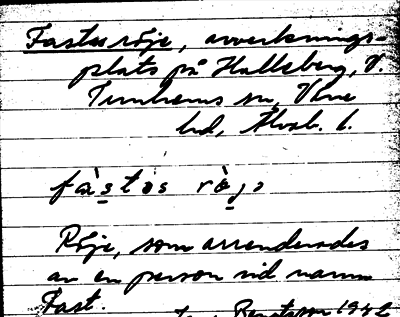 Fastes röje, avverknings-
plats på Hallsberg, V.
Tunhems sn, Väne
hd, Älvsb. l.
fàstəs ròjə
Röje, som arrenderades
av en person vid namn
Fast.
Bengtsson 1942